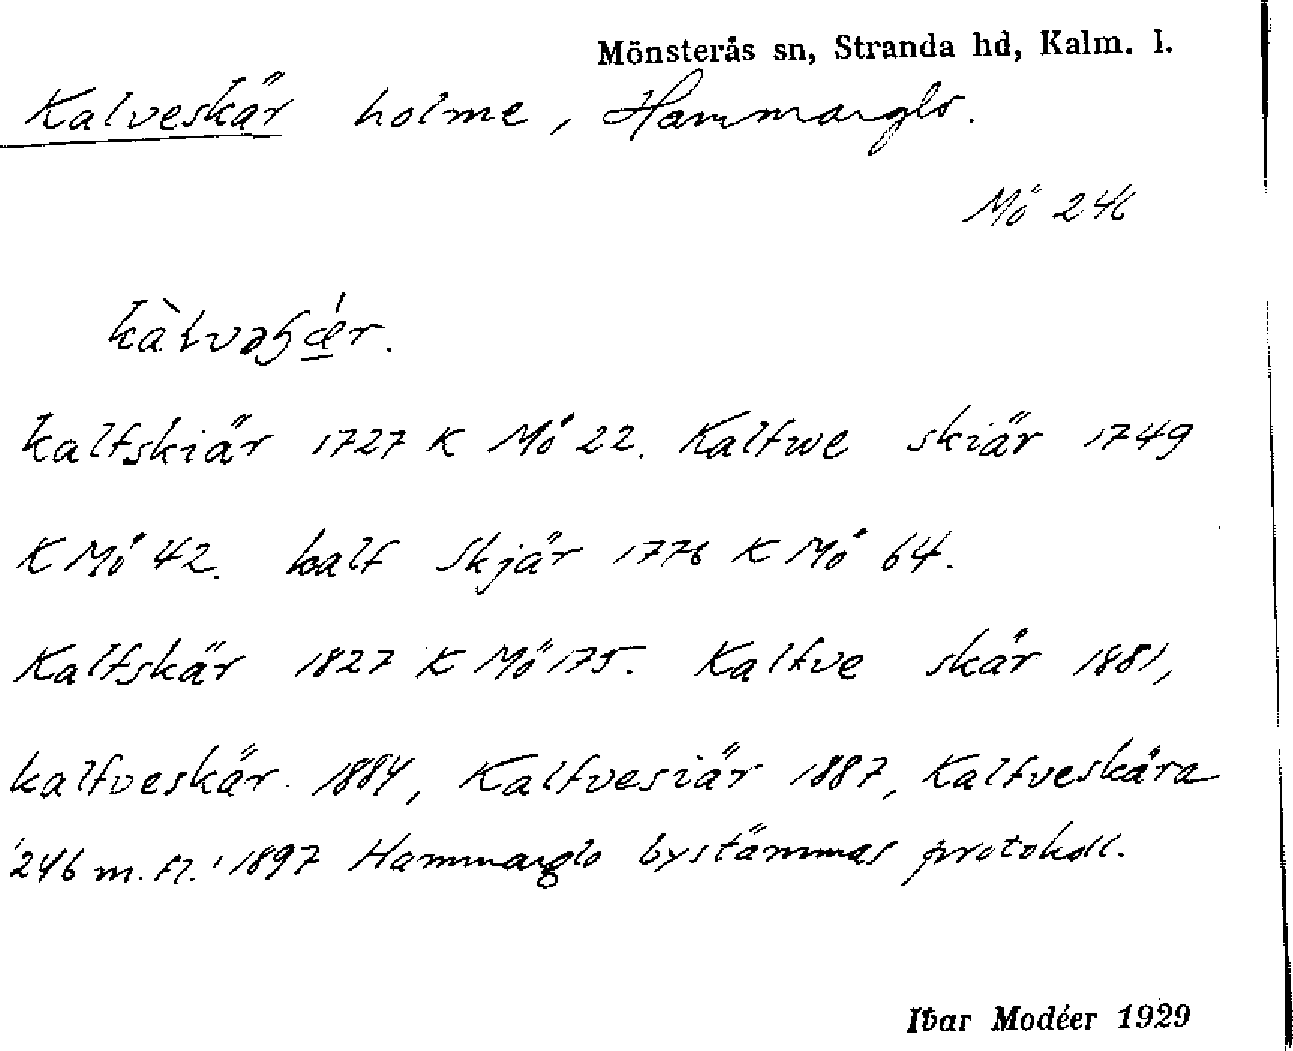 Mönsterås sn, Stranda hd, Kalm. l.
Kalveskär holme, Hammarglo.
Mö 246
kàlvəʂǽr.
kalfskiär 1727 K Mö 22. Kalfwe skiär 1749
K Mö 42. kalf Skjär 1776 K Mö 64.
Kalfskär 1827 K Mö 175. Kalfve skär 1881,
kalfveskär. 1884, Kalfvesiär 1887, Kalfveskära
'246 m. fl.' 1897 Hammarglo bystämmas protokoll.
Ivar Modéer 1929